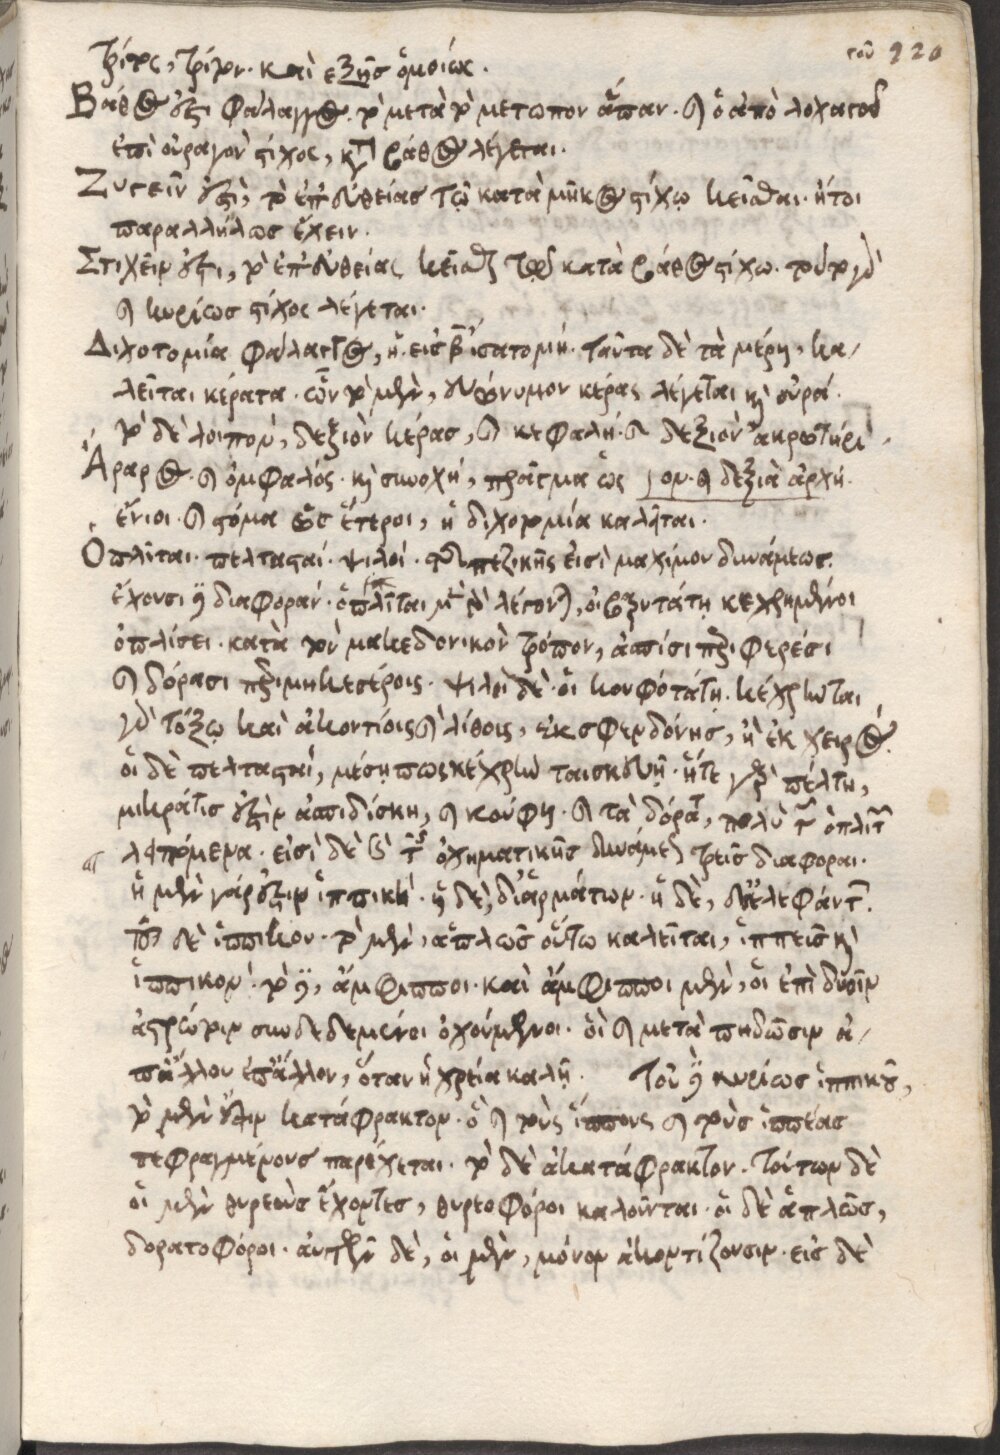 τοῦ 220
τρίτος, τρίτον· καὶ ἑξῆς ὁμοίως.
Βάθος ἐστὶ φάλαγγος, τὸ μετὰ τὸ μέτωπον ἅπαν· καὶ ὁ ἀπὸ λοχαγοῦ
ἐπὶ οὐραγὸν στίχος, κατὰ βάθος λέγεται.
Ζυγεῖν ἐστὶ, τὸ ἐπ' εὐθείας τῷ κατὰ μῆκος στίχῳ κεῖσθαι· ἤτοι
παραλλήλως ἔχειν.
Στιχεῖν ἐστι, τὸ ἐπ' εὐθείας κεῖσθαι τῷ κατὰ βάθος στίχω· τοῦτο γὰρ
καὶ κυρίως στίχος λέγεται.
Διχοτομία φάλαγγος, ἡ εἰς β ἰσατομή. ταῦτα δὲ τὰ μέρη, κα-
λεῖται κέρατα. ὧν τὸ μὲν, εὐώνυμον κέρας λέγεται καὶ οὐρά.
τὸ δὲ λοιπὸν, δεξιὸν κέρας, καὶ κεφαλή· καὶ δεξιὸν ἀκρωτήρι-
Ἄραρος· καὶ ὀμφαλός· καὶ συνοχή, πρᾶγμα ὡς ον· καὶ δεξιὰ ἀρχή.
ἔνιοι· καὶ στόμα ὡς ἕτεροι, ἡ διχοτομία καλεῖται.
Ὁπλῖται· πελτασταί· ψιλοί· πεζικῆς εἰσὶ μαχίμου δυνάμεως.
ἔχουσι δὲ διαφοράν· ὁπλῖται μὲν γὰρ λέγονται, οἱ βαρυτάτῃ κεχρημένοι
ὁπλίσει· κατὰ τὸν μακεδονικὸν τρόπον, ἀσπίσι περιφερέσι
καὶ δόρασι περιμηκεστέροις. ψιλοὶ δὲ· οἱ κουφοτάτῃ. κέχρηνται
γὰρ τόξῳ καὶ ἀκοντίοις καὶ λίθοις, ἐκ σφενδόνης, ἢ ἐκ χειρός.
οἱ δὲ πελτασταί, μέσῃ πως κέχρηνται σκευῇ. ἥτε γὰρ πέλτη,
μικρά τις ἐστὶν ἀσπιδίσκη, καὶ κούφη. καὶ τὰ δόρατα, πολὺ τῶν ὁπλιτῶν
λειπόμενα· εἰσὶ δὲ καὶ τῆς ὀχηματικῆς δυνάμεως τρεῖς διαφοραί.
ἡ μὲν γάρ ἐστιν ἱππική· ἡ δὲ, δι' ἁρμάτων· ἡ δὲ, δι' ἐλεφάντων.
τῶν δὲ ἱππικῶν· τὸ μὲν, ἁπλῶς οὕτω καλεῖται, ἱππεῖς καὶ
ἱππικόν· τὸ δὲ, ἄμφιπποι. καὶ ἄμφιπποι μὲν, οἱ ἐπὶ δυοῖν
ἀστρώτοιν συνδεδεμένοι ὀχούμενοι· οἳ καὶ μεταπηδῶσιν ἀ-
π' ἄλλου ἐπ' ἄλλον, ὅταν ἡ χρεία καλῇ. Τοῦ δὲ κυρίως ἱππικοῦ,
τὸ μέν ἐστιν κατάφρακτον· ὃ καὶ τοὺς ἵππους καὶ τοὺς ἱππέας
πεφραγμένους παρέχεται. τὸ δὲ ἀκατάφρακτον. τούτων δὲ
οἱ μὲν θυρεοὺς ἔχοντες, θυρεοφόροι καλοῦνται· οἱ δὲ ἁπλῶς,
δορατοφόροι. αὐτῶν δὲ, οἱ μὲν, μόνον ἀκοντίζουσιν· εἰς δὲ